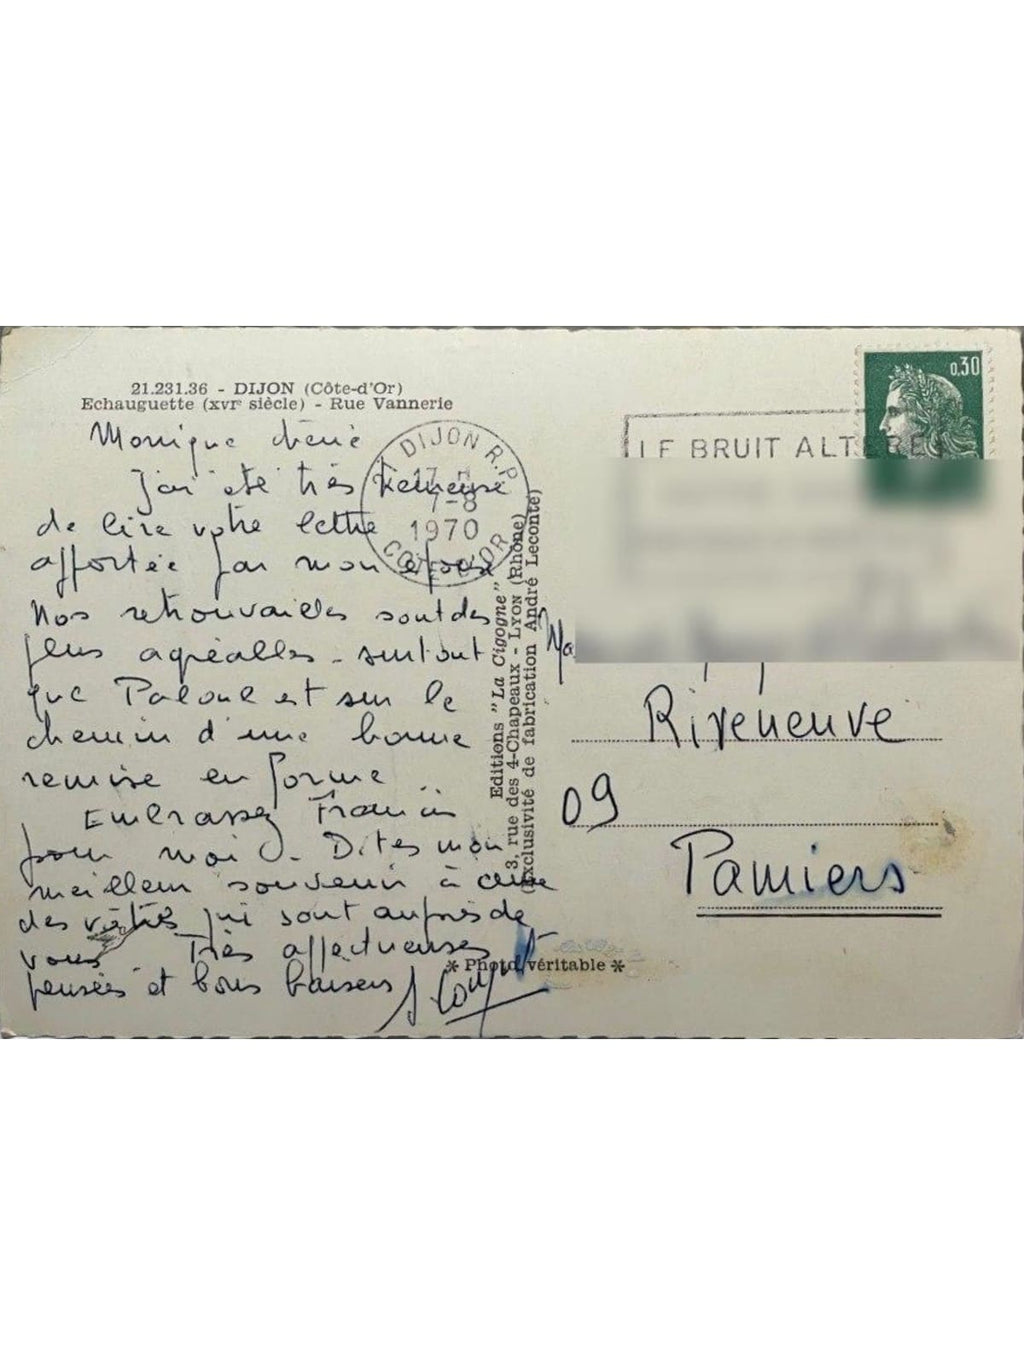 21.231.36 - DIJON (Côte-d'Or)
Echauguette (XVIe siècle) - Rue Vannerie
Monique chérie
J'ai été très heureuse
de lire votre lettre
apportée par mon époux
Nos retrouvailles sont des
plus agréables - surtout
que est sur le
chemin d'une bonne
remise en forme.
Embrassez Francis
pour moi. Dites mon
meilleur souvenir à ceux
des vôtres qui sont auprès de
vous Très affectueuses
pensées et bons baisers
DIJON R.P.
17
7-8
1970
COTE D'OR
Editions "La Cigogne"
3, rue des 4-Chapeaux - LYON (Rhône)
(Exclusivité de fabrication André Leconte)
* Photo véritable *
0,30
LE BRUIT ALTERE
Riveneuve
09
Pamiers